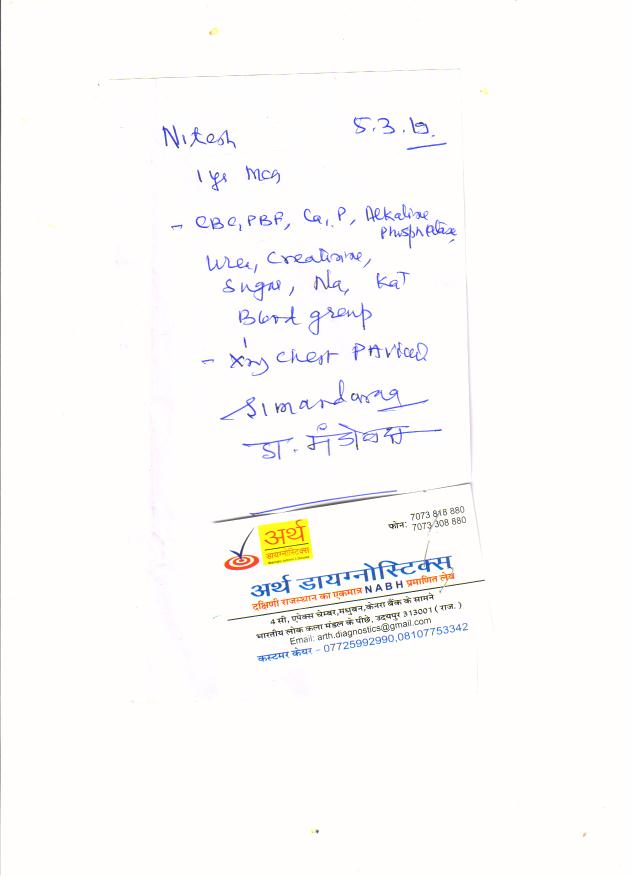 Nitesh 5.3.19.
1 yr Mch
- CBC, PBF, Ca, P, Alkaline
Phosphatase,
Urea, Creatinine,
Sugar, Na, Kat
Blood group
- Xray Chest PA
डा.
अर्थ
डायग्नोस्टिक्स
फोन: 7073 818 880
7073 308 880
अर्थ डायग्नोस्टिक्स
दक्षिणी राजस्थान का एकमात्र NABH प्रमाणित लेब
4 सी, एपेक्स चेम्बर,मधुबन,केनरा बैंक के सामने
भारतीय लोक कला मंडल के पीछे, उदयपुर 313001 ( राज. )
Email: arth.diagnostics@gmail.com
कस्टमर केयर - 07725992990,08107753342